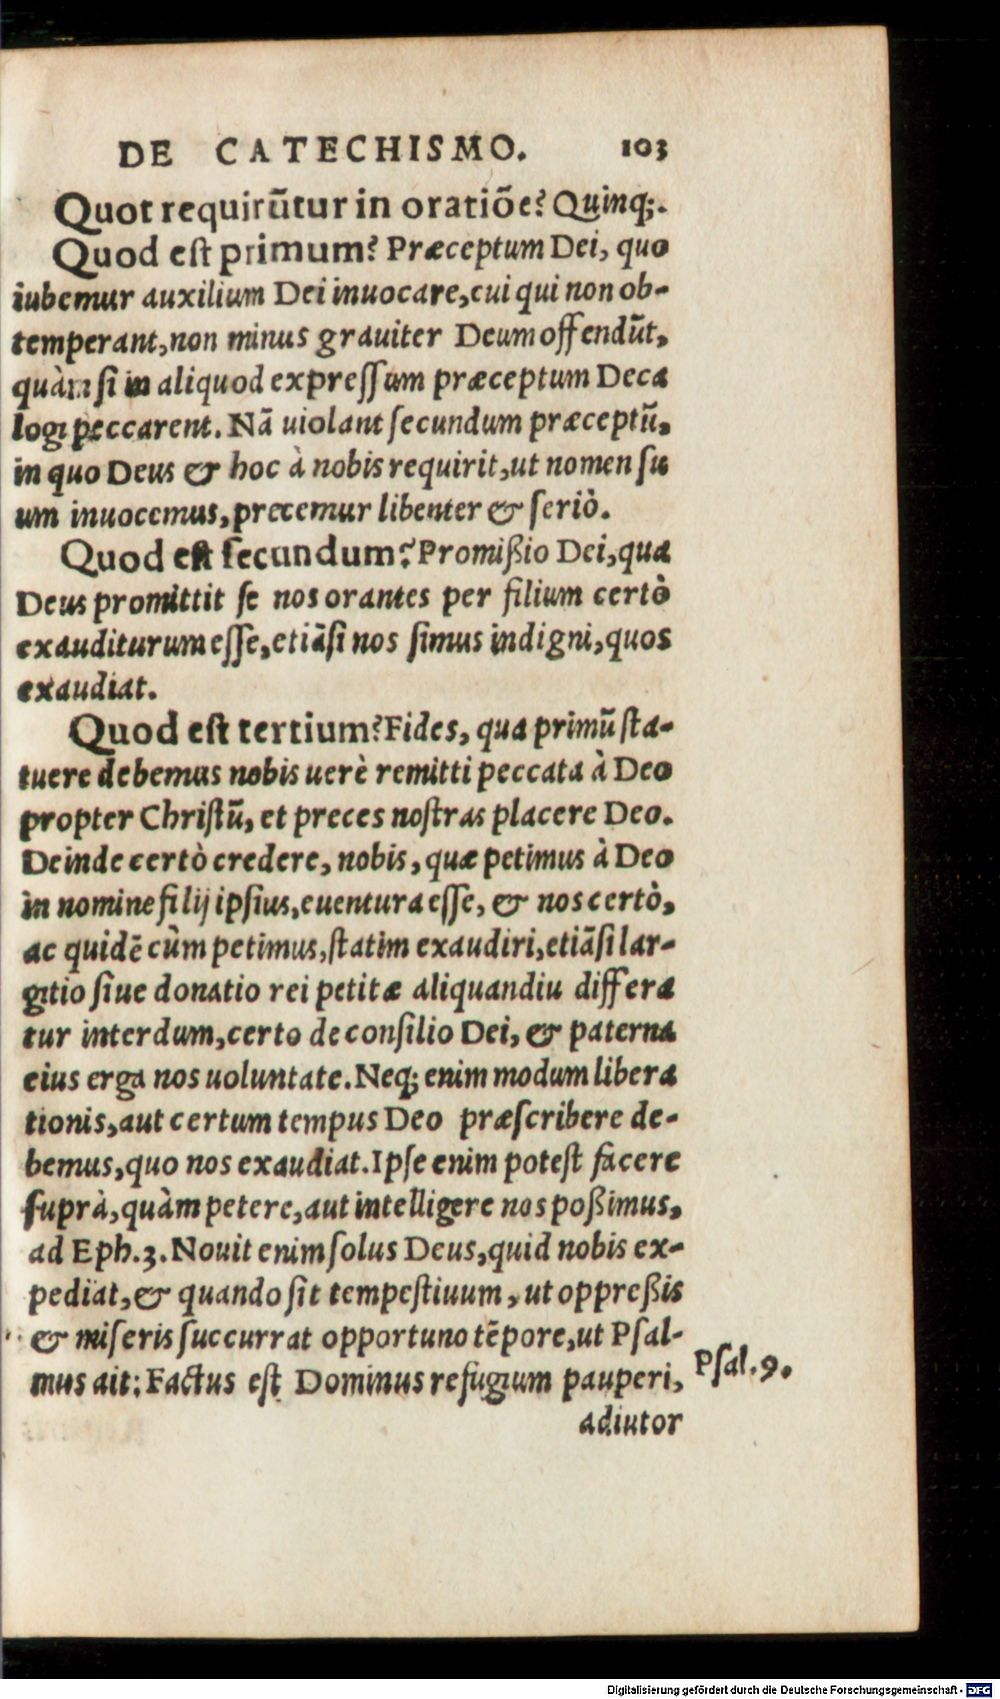 DE CATECHISMO. 103
Quot requirũtur in oratiõe? Quinq;.
Quod eſt primum? Præceptum Dei, quo
iubemur auxilium Dei inuocare, cui qui non ob-
temperant, non minus grauiter Deum offendũt,
quàm ſi in aliquod expreſſum præceptum Deca
logi peccarent. Nã uiolant ſecundum præceptũ,
in quo Deus & hoc à nobis requirit, ut nomen ſu
um inuocemus, precemur libenter & ſeriò.
Quod eſt ſecundum? Promiſsio Dei, qua
Deus promittit ſe nos orantes per filium certò
exauditurum eſſe, etiãſi nos ſimus indigni, quos
exaudiat.
Quod eſt tertium? Fides, qua primũ ſta-
tuere debemus nobis uerè remitti peccata à Deo
propter Chriſtũ, et preces noſtras placere Deo.
Deinde certò credere, nobis, quæ petimus à Deo
in nomine filij ipſius, euentura eſſe, & nos certò,
ac quidẽ cùm petimus, ſtatim exaudiri, etiãſi lar-
gitio ſiue donatio rei petitæ aliquandiu differa
tur interdum, certo de conſilio Dei, & paterna
eius erga nos uoluntate. Neq; enim modum libera
tionis, aut certum tempus Deo præſcribere de-
bemus, quo nos exaudiat. Ipſe enim poteſt facere
ſuprà, quàm petere, aut intelligere nos poſsimus,
ad Eph. 3. Nouit enim ſolus Deus, quid nobis ex-
pediat, & quando ſit tempeſtiuum, ut oppreſsis
& miſeris ſuccurrat opportuno tẽpore, ut Pſal-
mus ait: Factus eſt Dominus refugium pauperi,
Pſal. 9.
adiutor
Digitalisierung gefördert durch die Deutsche Forschungsgemeinschaft - DFG